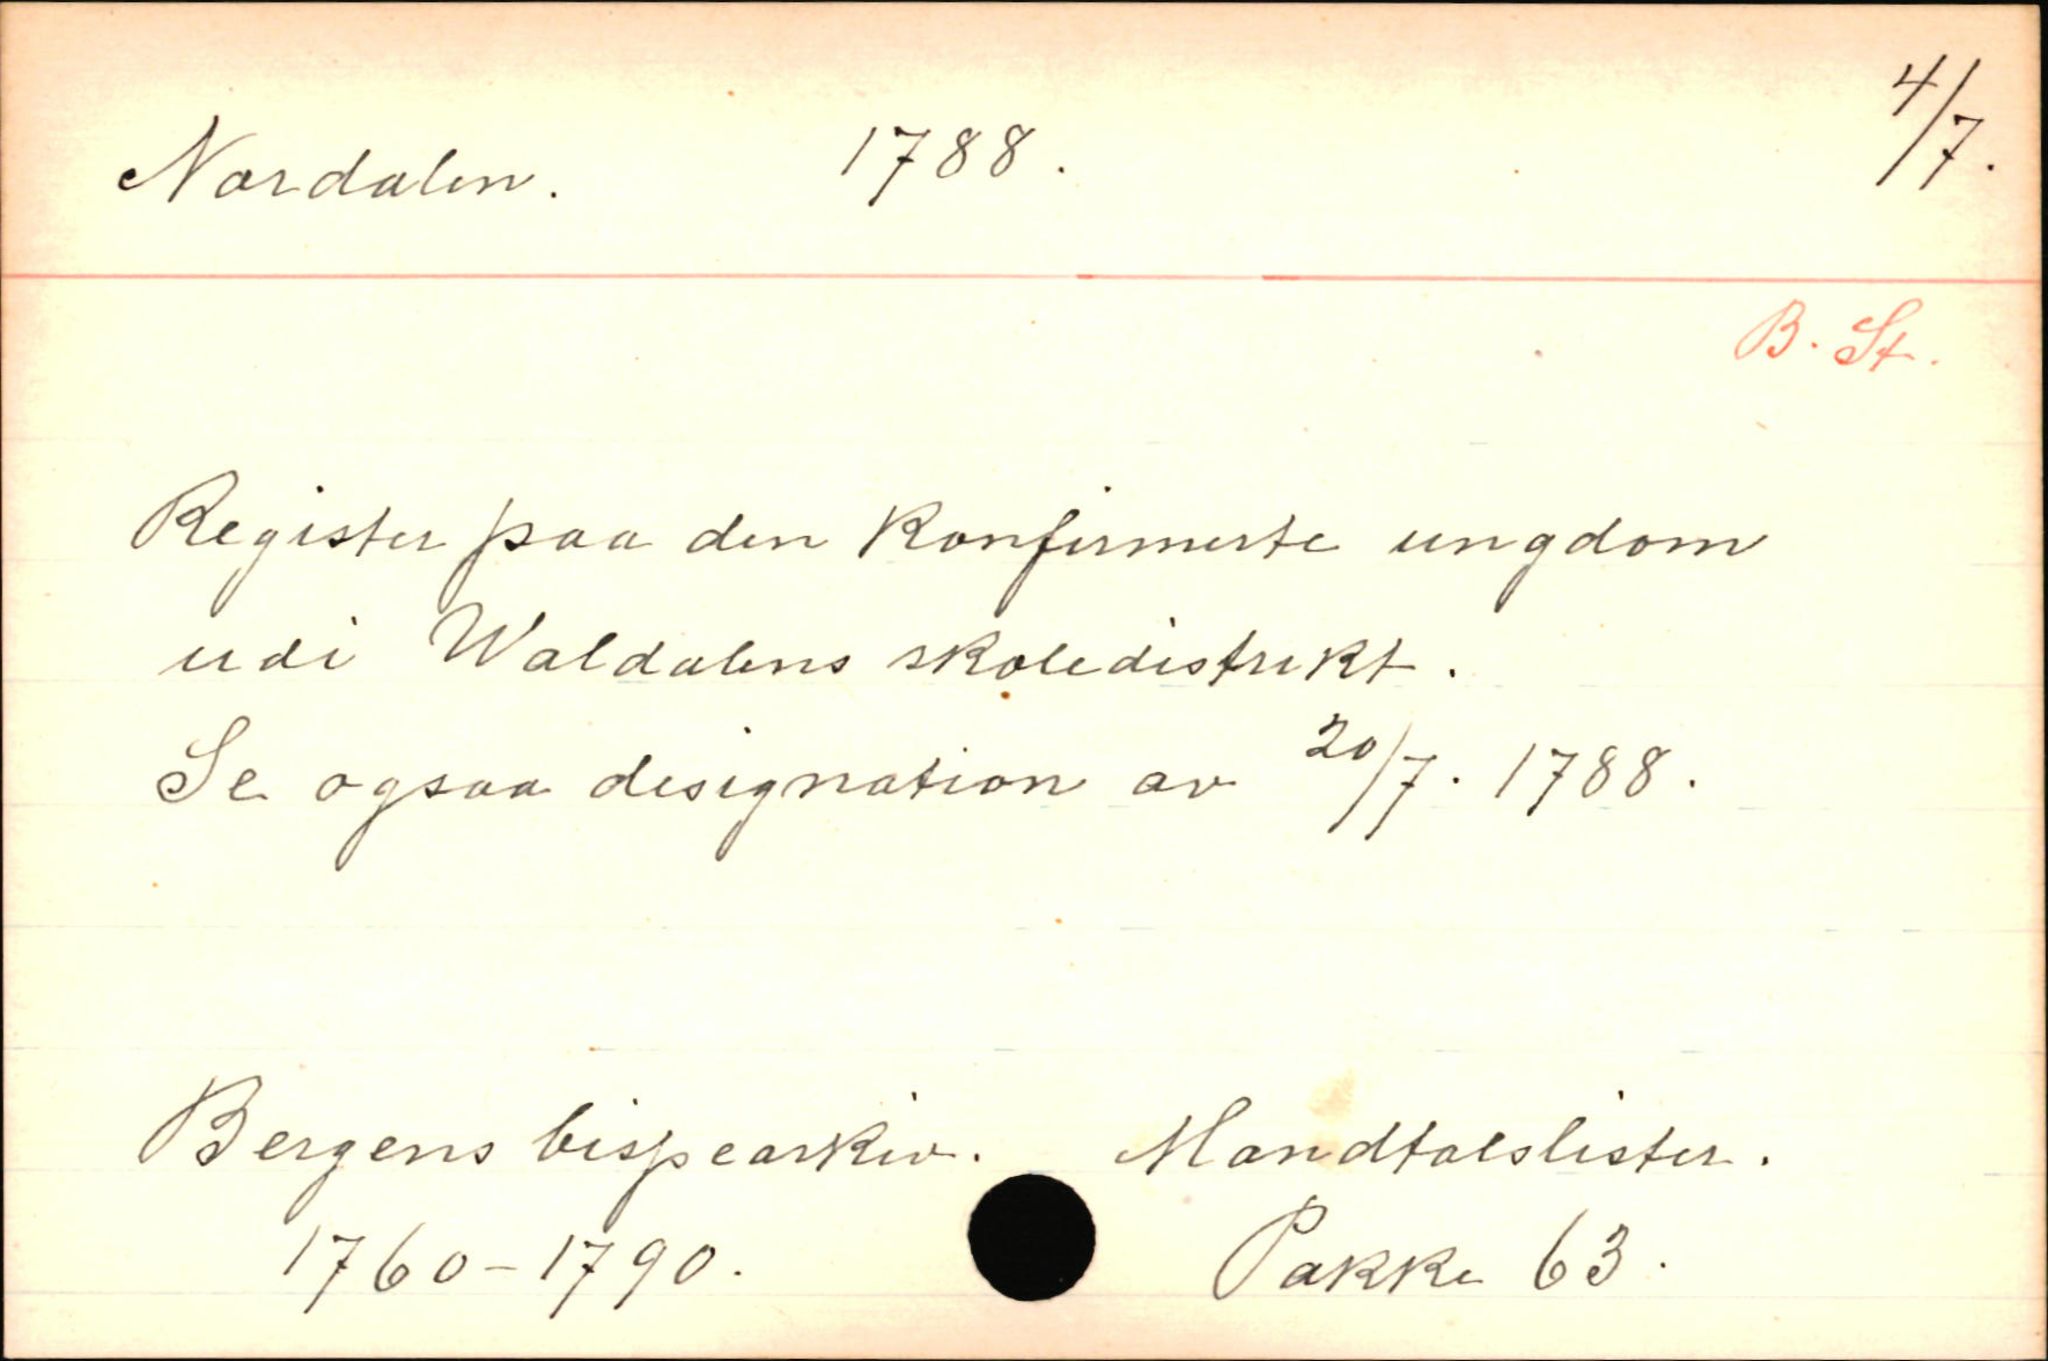 Nordalen. 1788. 4/7.
B. St.
Register paa den konfirmerte ungdom
udi Waldalens skoledistrikt.
Se ogsaa designation av 20/7. 1788.
Bergens bispearkiv. Mandtalslister.
1760-1790. Pakke 63.